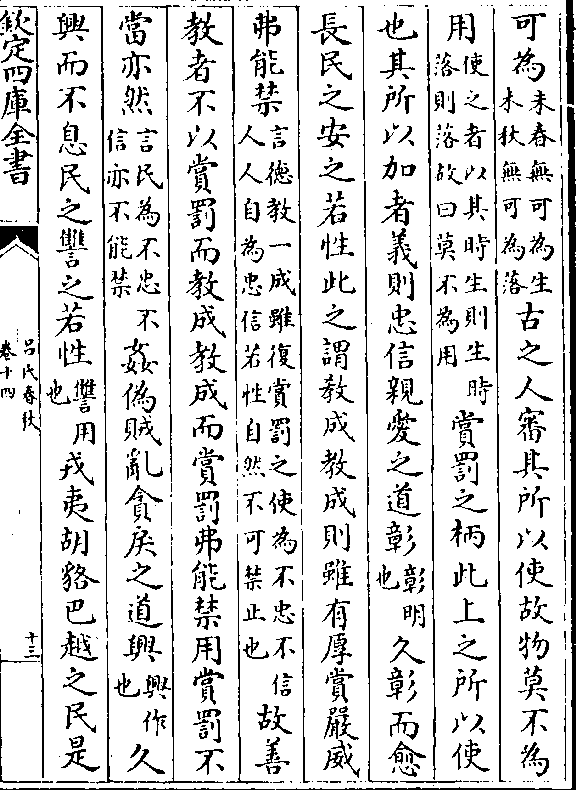 可為未春無可為生未秋無可為落古之人審其所以使故物莫不為
用使之者以其時生則生時落則落故曰莫不為用賞罰之柄此上之所以使
也其所以加者義則忠信親愛之道彰彰明也久彰而愈
長民之安之若性此之謂教成教成則雖有厚賞嚴威
弗能禁言德教一成雖復賞罰之使為不忠不信人人自為忠信若性自然不可禁止也故善
教者不以賞罰而教成教成而賞罰弗能禁用賞罰不
當亦然言民為不忠不信亦不能禁姦偽賊亂貪戾之道興興作也久
興而不息民之讐之若性讐用也戎夷胡貉巴越之民是
欽定四庫全書
呂氏春秋
卷十四
十三